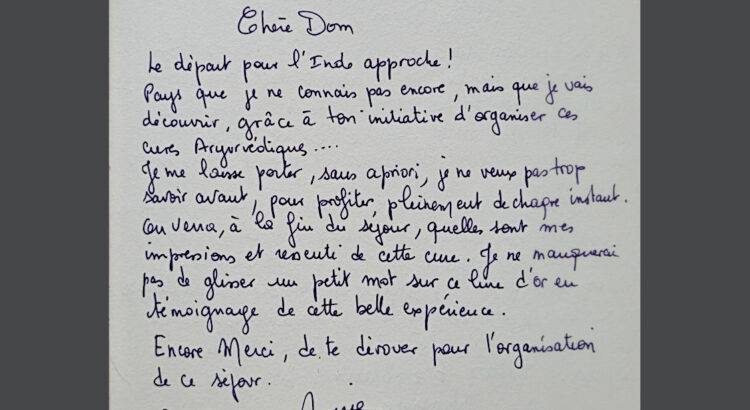 Chère Dom
Le départ pour l'Inde approche !
Pays que je ne connais pas encore, mais que je vais
découvrir, grâce à ton initiative d'organiser ces
cures Aryurvédiques....
Je me laisse porter, sans apriori, je ne veux pas trop
savoir avant, pour profiter pleinement de chaque instant.
On verra, à la fin du séjour, quelles sont mes
impressions et ressenti de cette cure. Je ne manquerai
pas de glisser un petit mot sur ce livre d'or en
témoignage de cette belle expérience.
Encore Merci, de te dévouer pour l'organisation
de ce séjour.